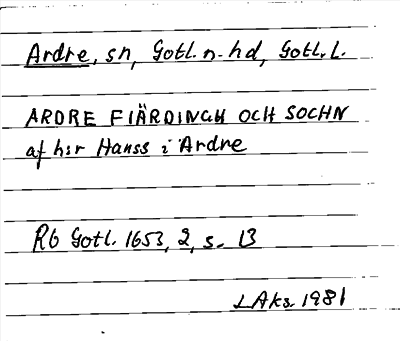 Ardre, sn, Gotl. n. hd, Gotl. L.
ARDRE FIÄRDINGH OCH SOCHN
af h:r Hanss i Ardre
Rb Gotl. 1653, 2, s. 13
LAks. 1981